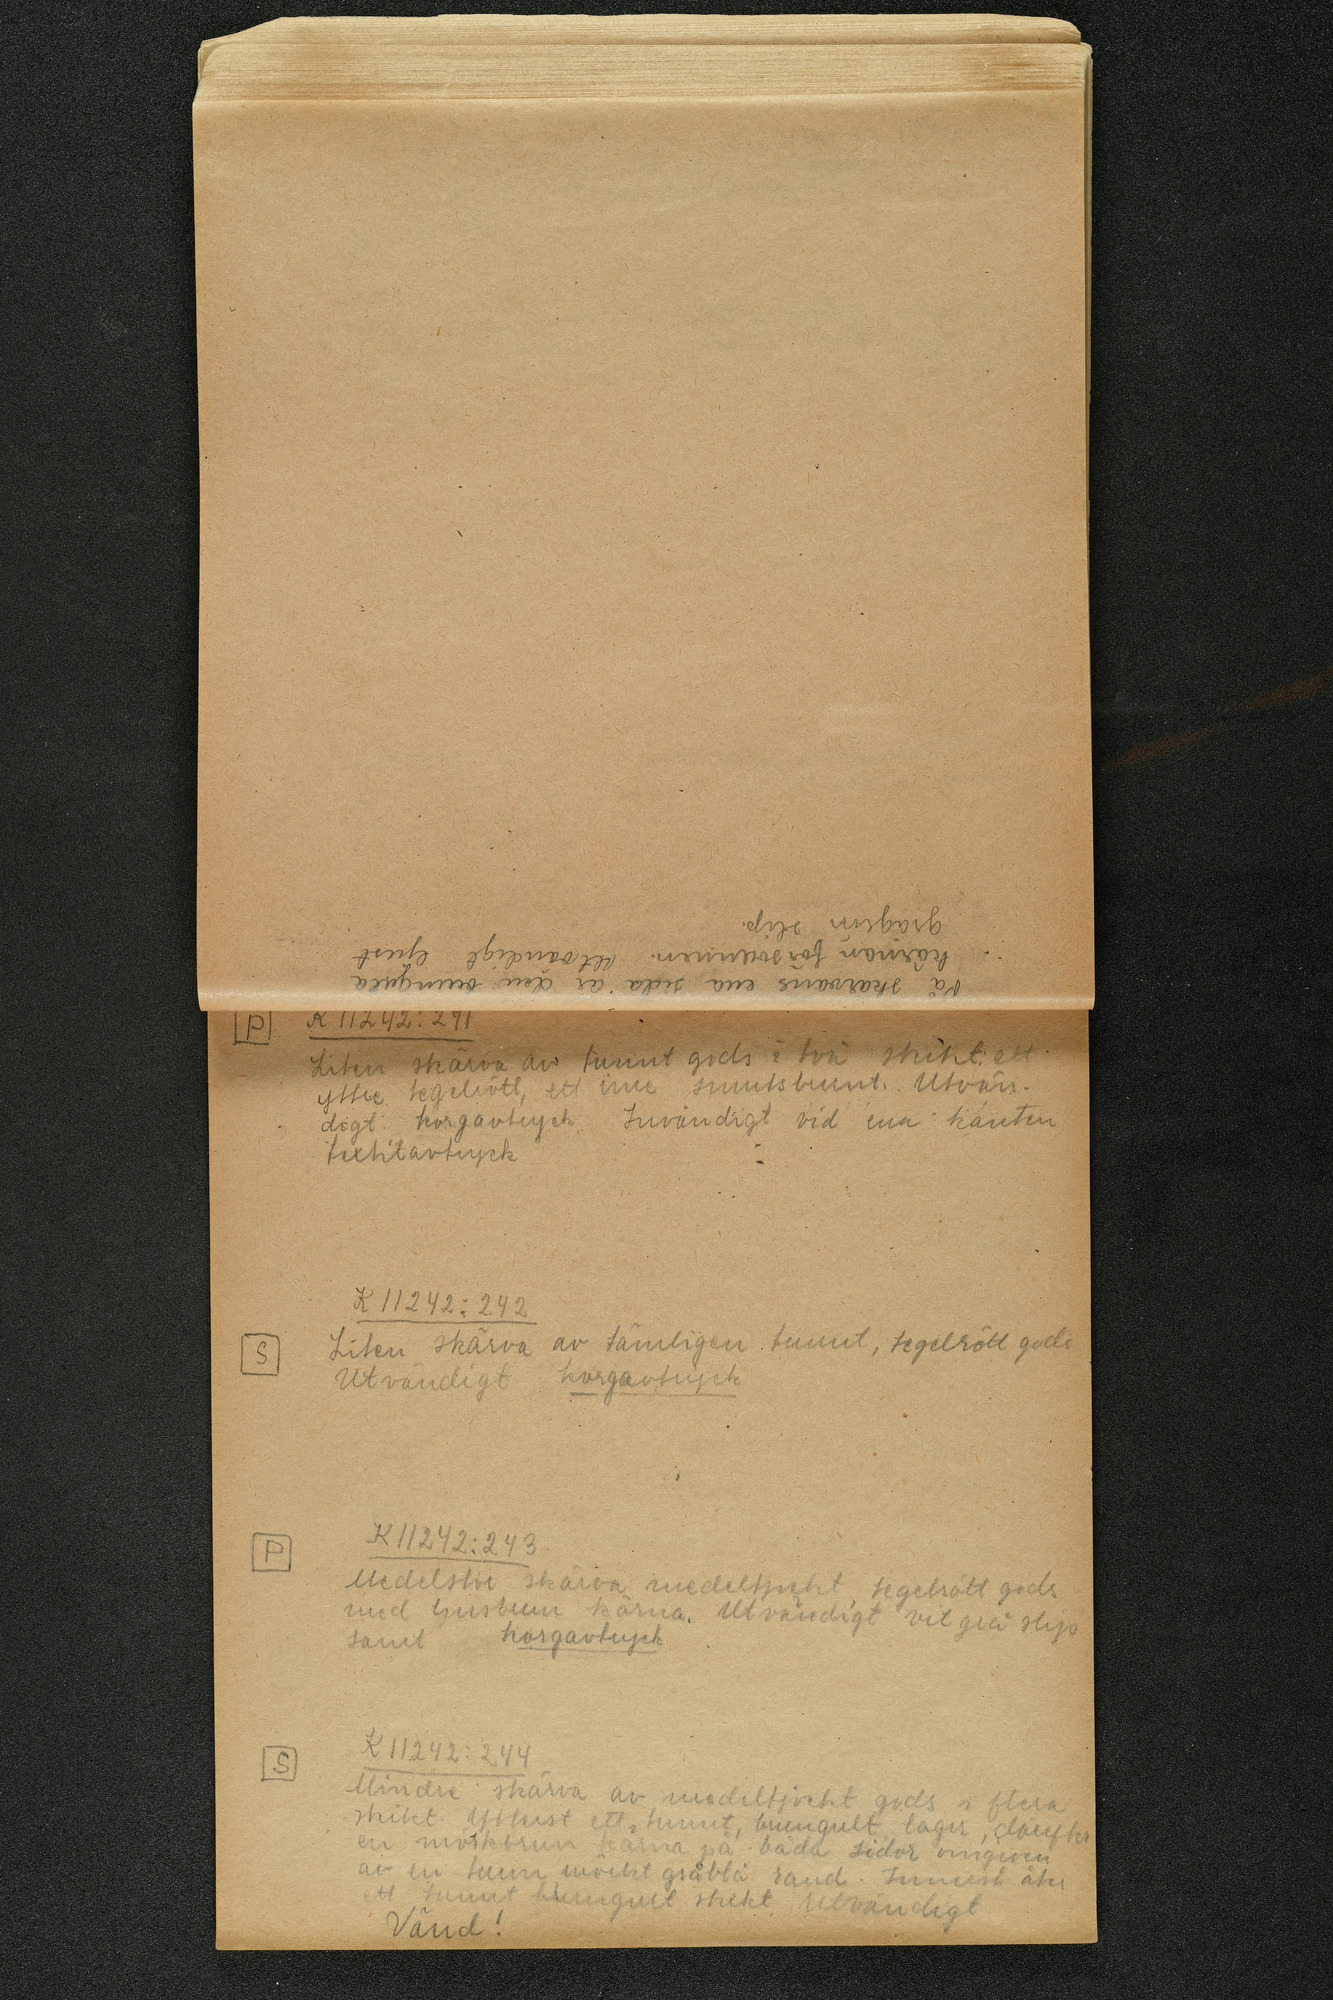 På skärvans ena sida är den brungula
kärnan försvunnen. Utvändigt ljust
grågrön slip.
P K 11242:241
Liten skärva av tunnt gods i två skikt: ett
yttre tegelrött, ett inre smutsbrunt. Utvän-
digt korgavtryck. Invändigt vid ena kanten
textilavtryck
K 11242:242
S Liten skärva av tämligen tunnt, tegelrött gods
Utvändigt korgavtryck
P K 11242:243
Medelstor skärva medeltjockt tegelrött gods
med ljusbrun kärna. Utvändigt vitgrå slip
samt korgavtryck
S K 11242:244
Mindre skärva av medeltjockt gods i flera
skikt. Ytterst ett tunnt, brungult lager, därefter
en mörkbrun kärna på båda sidor omgiven
av en tunn mörkt gråblå rand. Innerst åter
ett tunnt brungult skikt. Utvändigt
Vänd!